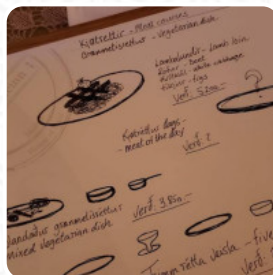 Kjötréttir - Meat courses
Grænmetisréttur - vegetarian dish.
Lambalundir - Lamb loin
Rófur - beet
Hvítkál - white cabbage
fíkjur - figs
Verð 5.200.-
Kjötréttur dags -
- meat of the day
Verð ?
Blandaður grænmetisréttur
mixed vegetarian dish.
Verð 3.850.-
rétta veisla - five
Verð.